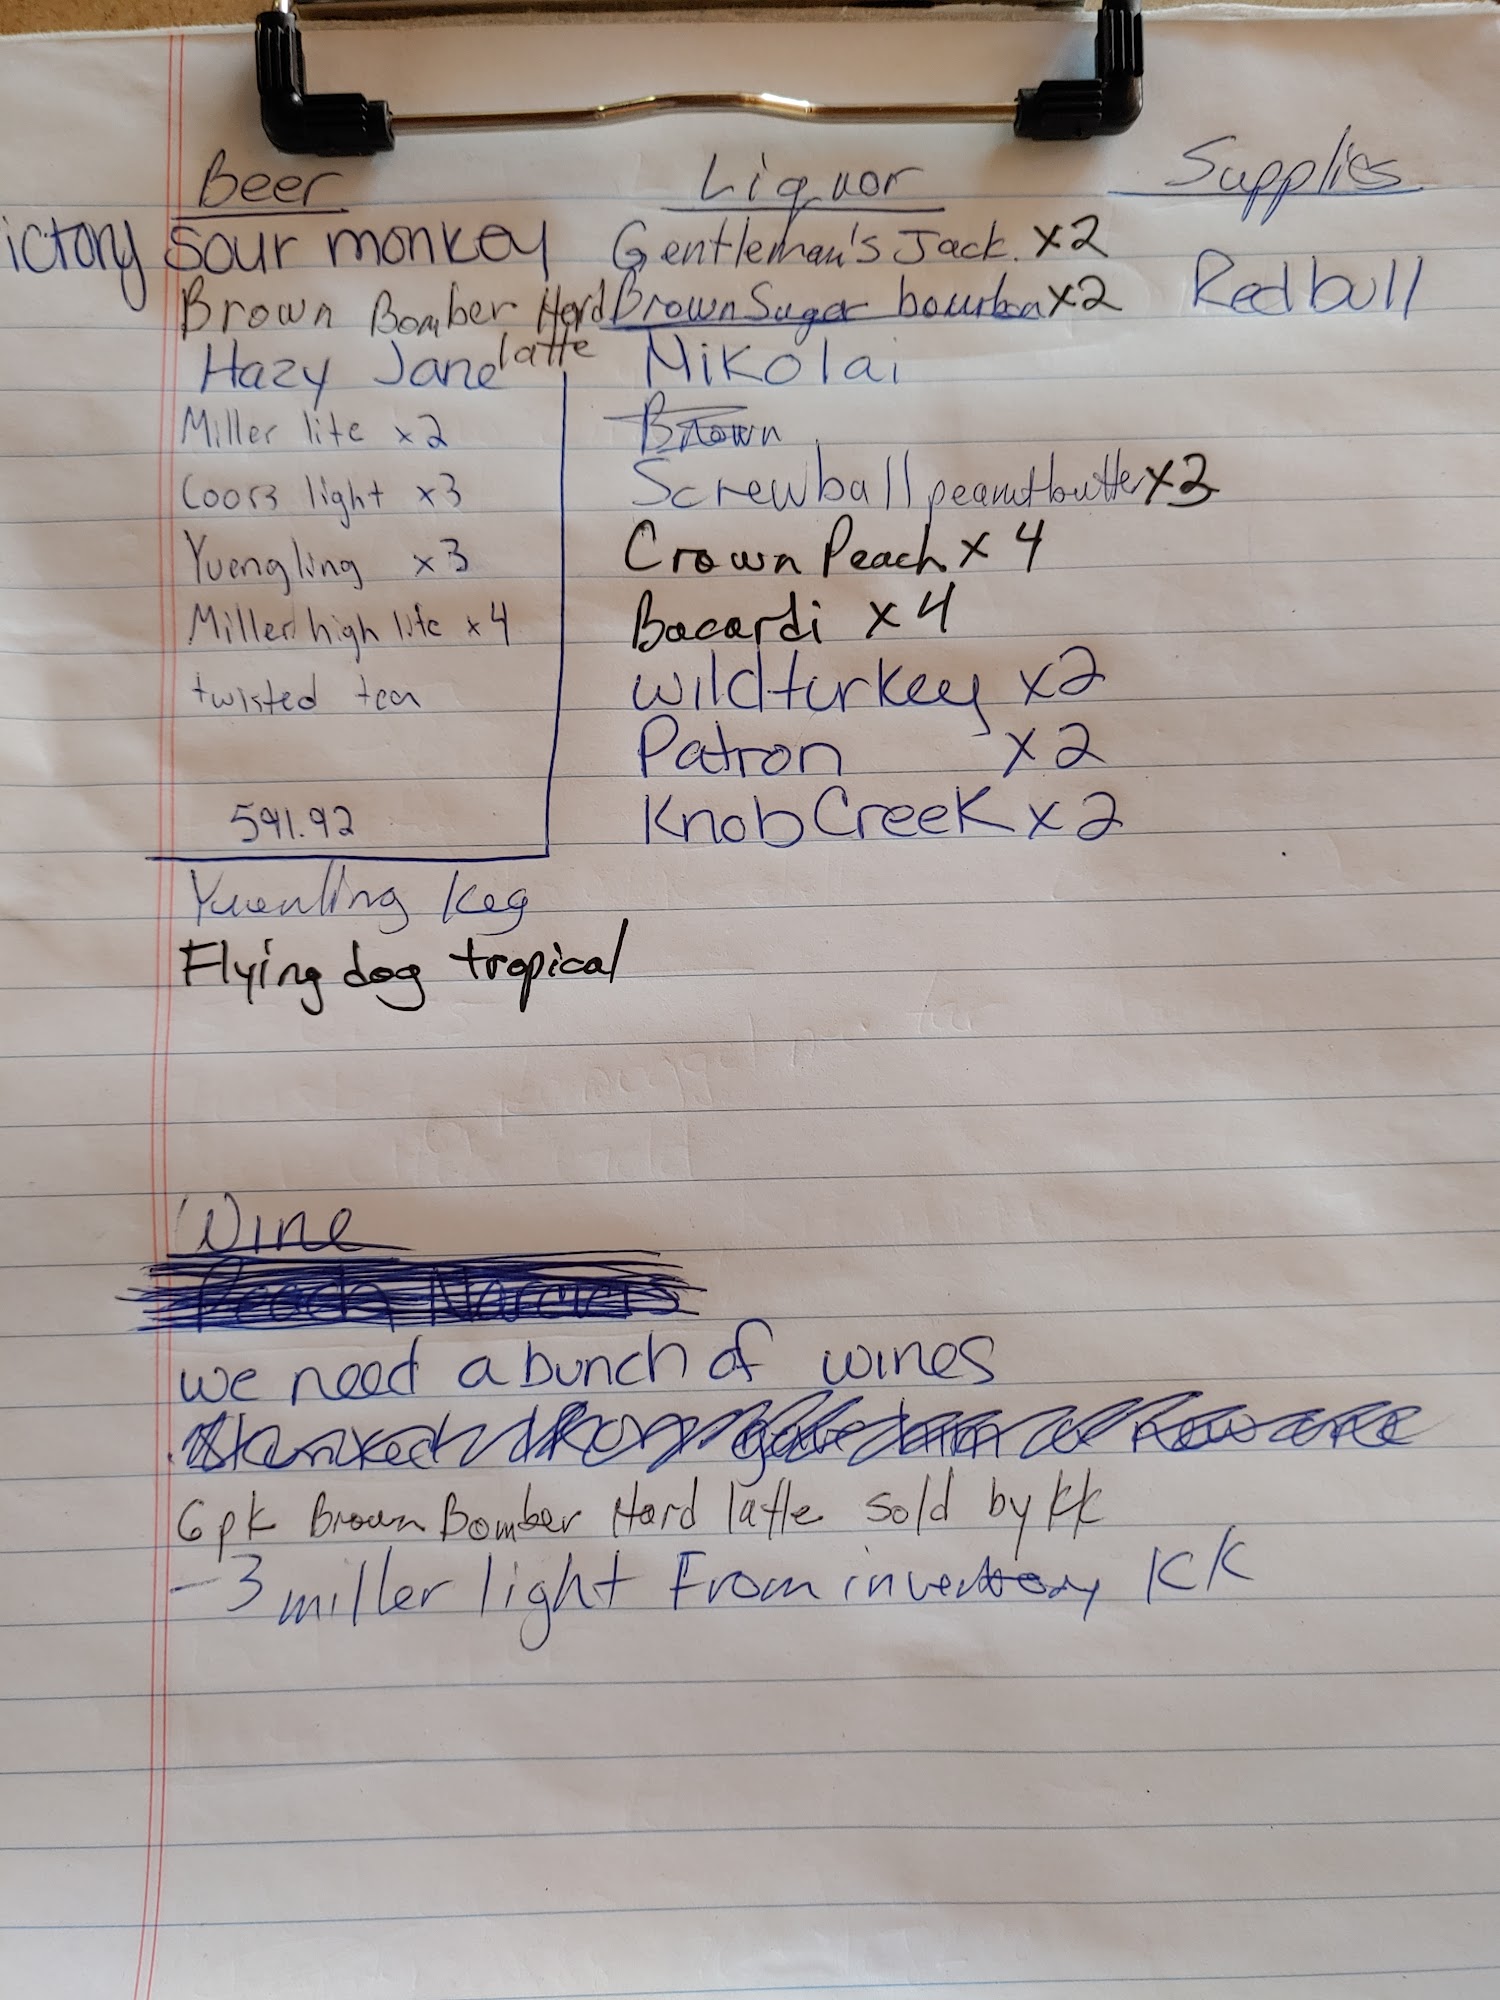 Beer
ictory Sour monkey
Brown Bomber Hard
latte
Hazy Jane
Miller lite x2
Coors light x3
Yuengling x3
Miller high life x4
twisted tea
591.92
Yuenling Keg
Flying dog tropical
Liquor
Gentleman's Jack. x2
Brown Sugar bourbon x2
Nikolai
Brown
Screwball peanutbutter x3
Crown Peach x 4
Bacardi x 4
wild turkey x2
Patron x2
Knob Creek x2
Supplies
Redbull
Wine
we need a bunch of wines
6pk Brown Bomber Hard latte sold by KK
-3 miller light From inventory KK